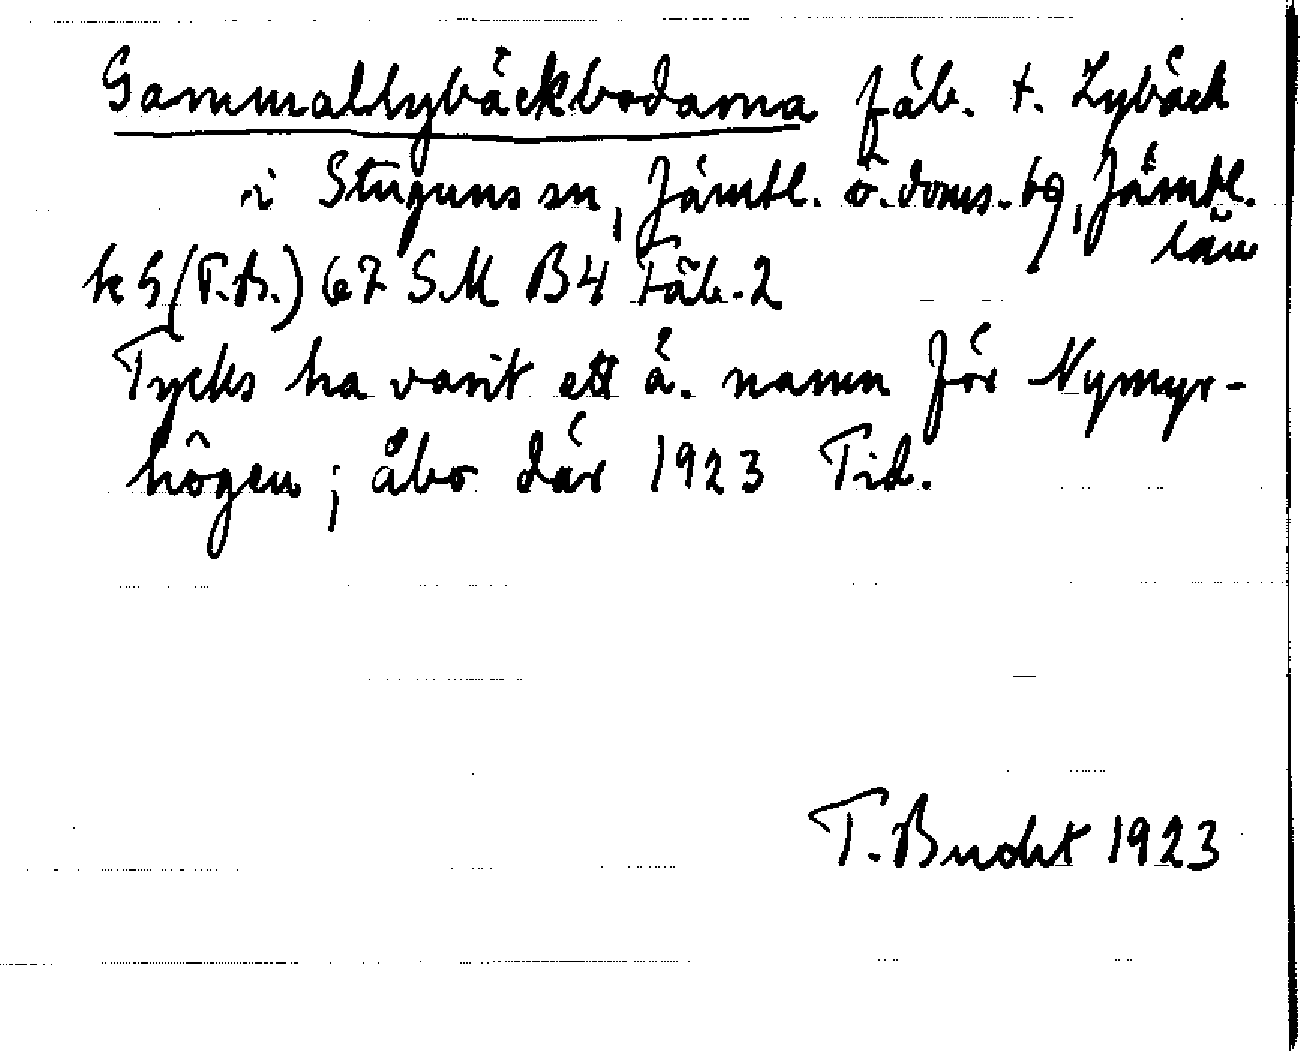 Gammallybäckbodarna fäb. t. Lybäck
i Stuguns sn, Jämtl. ö. doms. bg, Jämtl.
län
k 5 (T.B.) 67 SM B4 Fäb. 2
Tycks ha varit ett ä. namn för Nymyr-
högen; åbo där 1923 Tid.
T. Bucht 1923